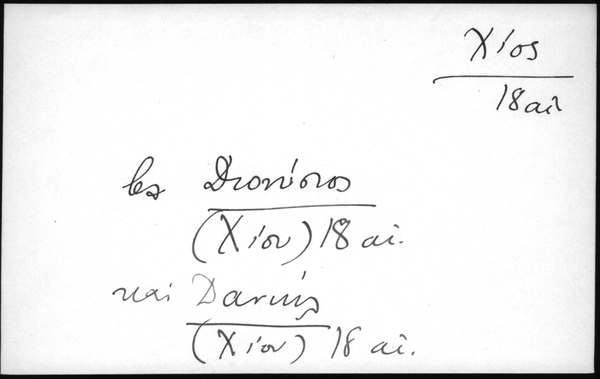 Χίος
18 αἰ
βλ Διονύσιος
(Χίου) 18 αἰ.
καὶ Δανιήλ
(Χίου) 18 αἰ.